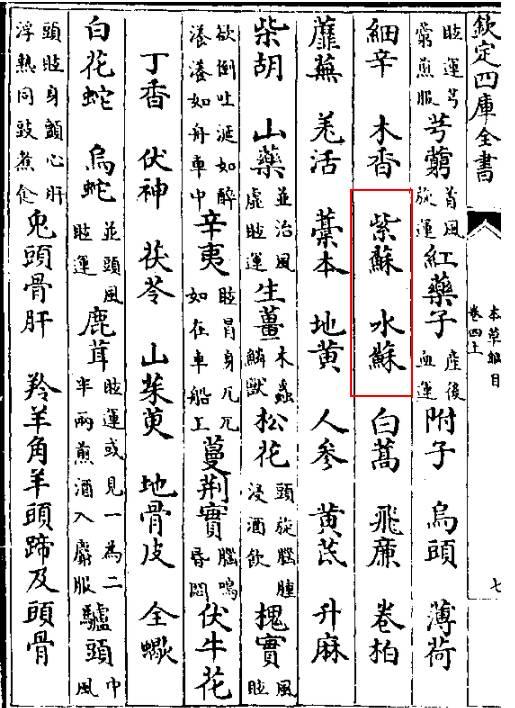 欽定四庫全書 本草綱目 卷四上 七
眩運芎藭煎服 芎藭 首風旋運 紅藥子 產後血運 附子 烏頭 薄荷
細辛 木香 紫蘇 水蘇 白蒿 飛廉 卷柏
蘼蕪 羌活 藁本 地黃 人參 黃芪 升麻
柴胡 山藥 並治風虛眩運 生薑 木蟲鱗獸 松花 頭旋腦腫浸酒飲 槐實 風眩
欲倒吐涎如醉瀁瀁如舟車中 辛夷 眩冒身兀兀如在車船上 蔓荊實 腦鳴昏悶 伏牛花
丁香 伏神 茯苓 山茱萸 地骨皮 全蠍
白花蛇 烏蛇 並頭風眩運 鹿茸 眩運或見一為二半兩煎酒入麝服 驢頭 中風
頭眩身顫心肝浮熱同豉煮食 兔頭骨肝 羚羊角羊頭蹄及頭骨